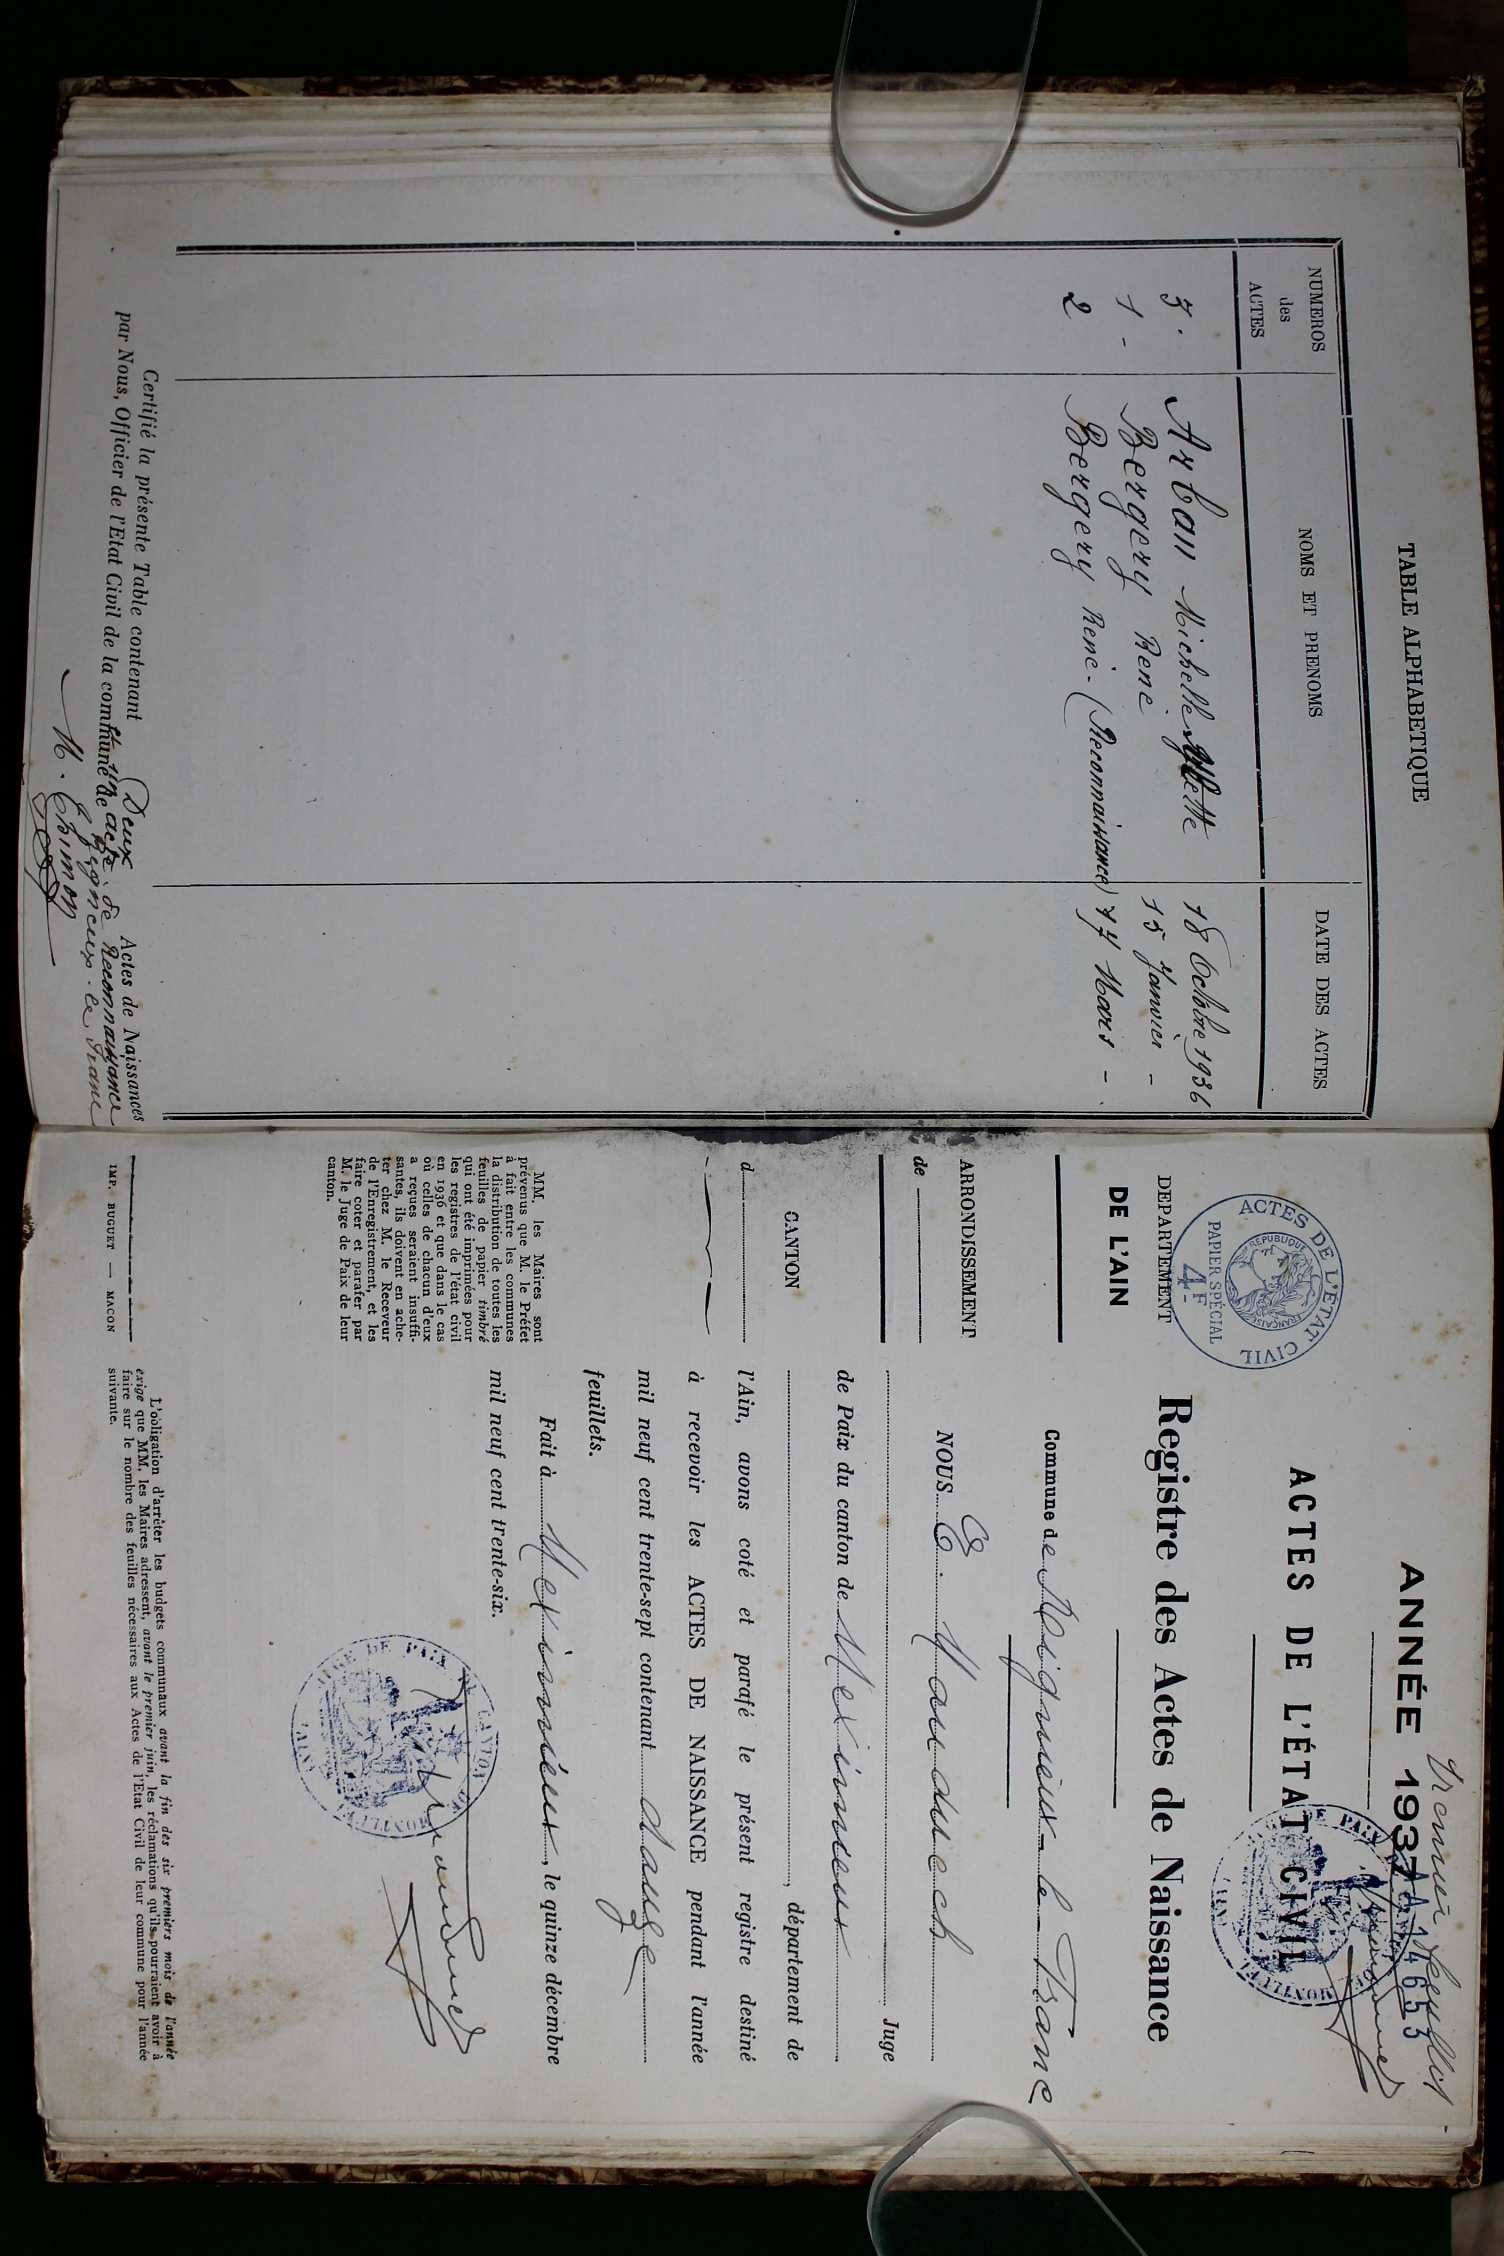 TABLE ALPHABETIQUE
NUMEROS des ACTES
NOMS ET PRENOMS
DATE DES ACTES
3. Arban Michelle 18 Octobre 1936
1 - Bergery René 15 Janvier -
2 Bergery René. (Reconnaissance) 17 Mars -
Certifié la présente Table contenant Deux Actes de Naissances
et un acte de Reconnaissance
par Nous, Officier de l'Etat Civil de la commune de Rigneux-le-Franc
M.
Premier feuillet
ANNÉE 1937
A 14653
ACTES DE L'ÉTAT CIVIL
Registre des Actes de Naissance
ACTES DE L'ÉTAT CIVIL
RÉPUBLIQUE FRANÇAISE
PAPIER SPÉCIAL
4F
DEPARTEMENT
DE L'AIN
ARRONDISSEMENT
de
CANTON
d
MM. les Maires sont
prévenus que M. le Préfet
a fait entre les communes
la distribution de toutes les
feuilles de papier timbré
qui ont été imprimées pour
les registres de l'état civil
en 1936 et que dans le cas
où celles de chacun d'eux
a reçues seraient insuffi-
santes, ils doivent en ache-
ter chez M. le Receveur
de l'Enregistrement, et les
faire coter et parafer par
M. le Juge de Paix de leur
canton.
IMP. BUGUET — MACON
Commune de Rigneux-le-Franc
NOUS E. Mauduech
Juge
de Paix du canton de Meximieux
, département de
l'Ain, avons coté et parafé le présent registre destiné
à recevoir les ACTES DE NAISSANCE pendant l'année
mil neuf cent trente-sept contenant douze
feuillets.
Fait à Meximieux, le quinze décembre
mil neuf cent trente-six.
L'obligation d'arrêter les budgets communaux avant la fin des six premiers mois de l'année
exige que MM. les Maires adressent, avant le premier juin, les réclamations qu'ils pourraient avoir à
faire sur le nombre des feuilles nécessaires aux Actes de l'Etat Civil de leur commune pour l'année
suivante.